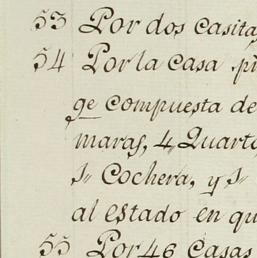 53 Por dos casita
54 Por la casa pr
qe compuesta de
maras, 4 Quarto
1" Cochera, y 1"
al estado en qu
55 Por 46 Casas